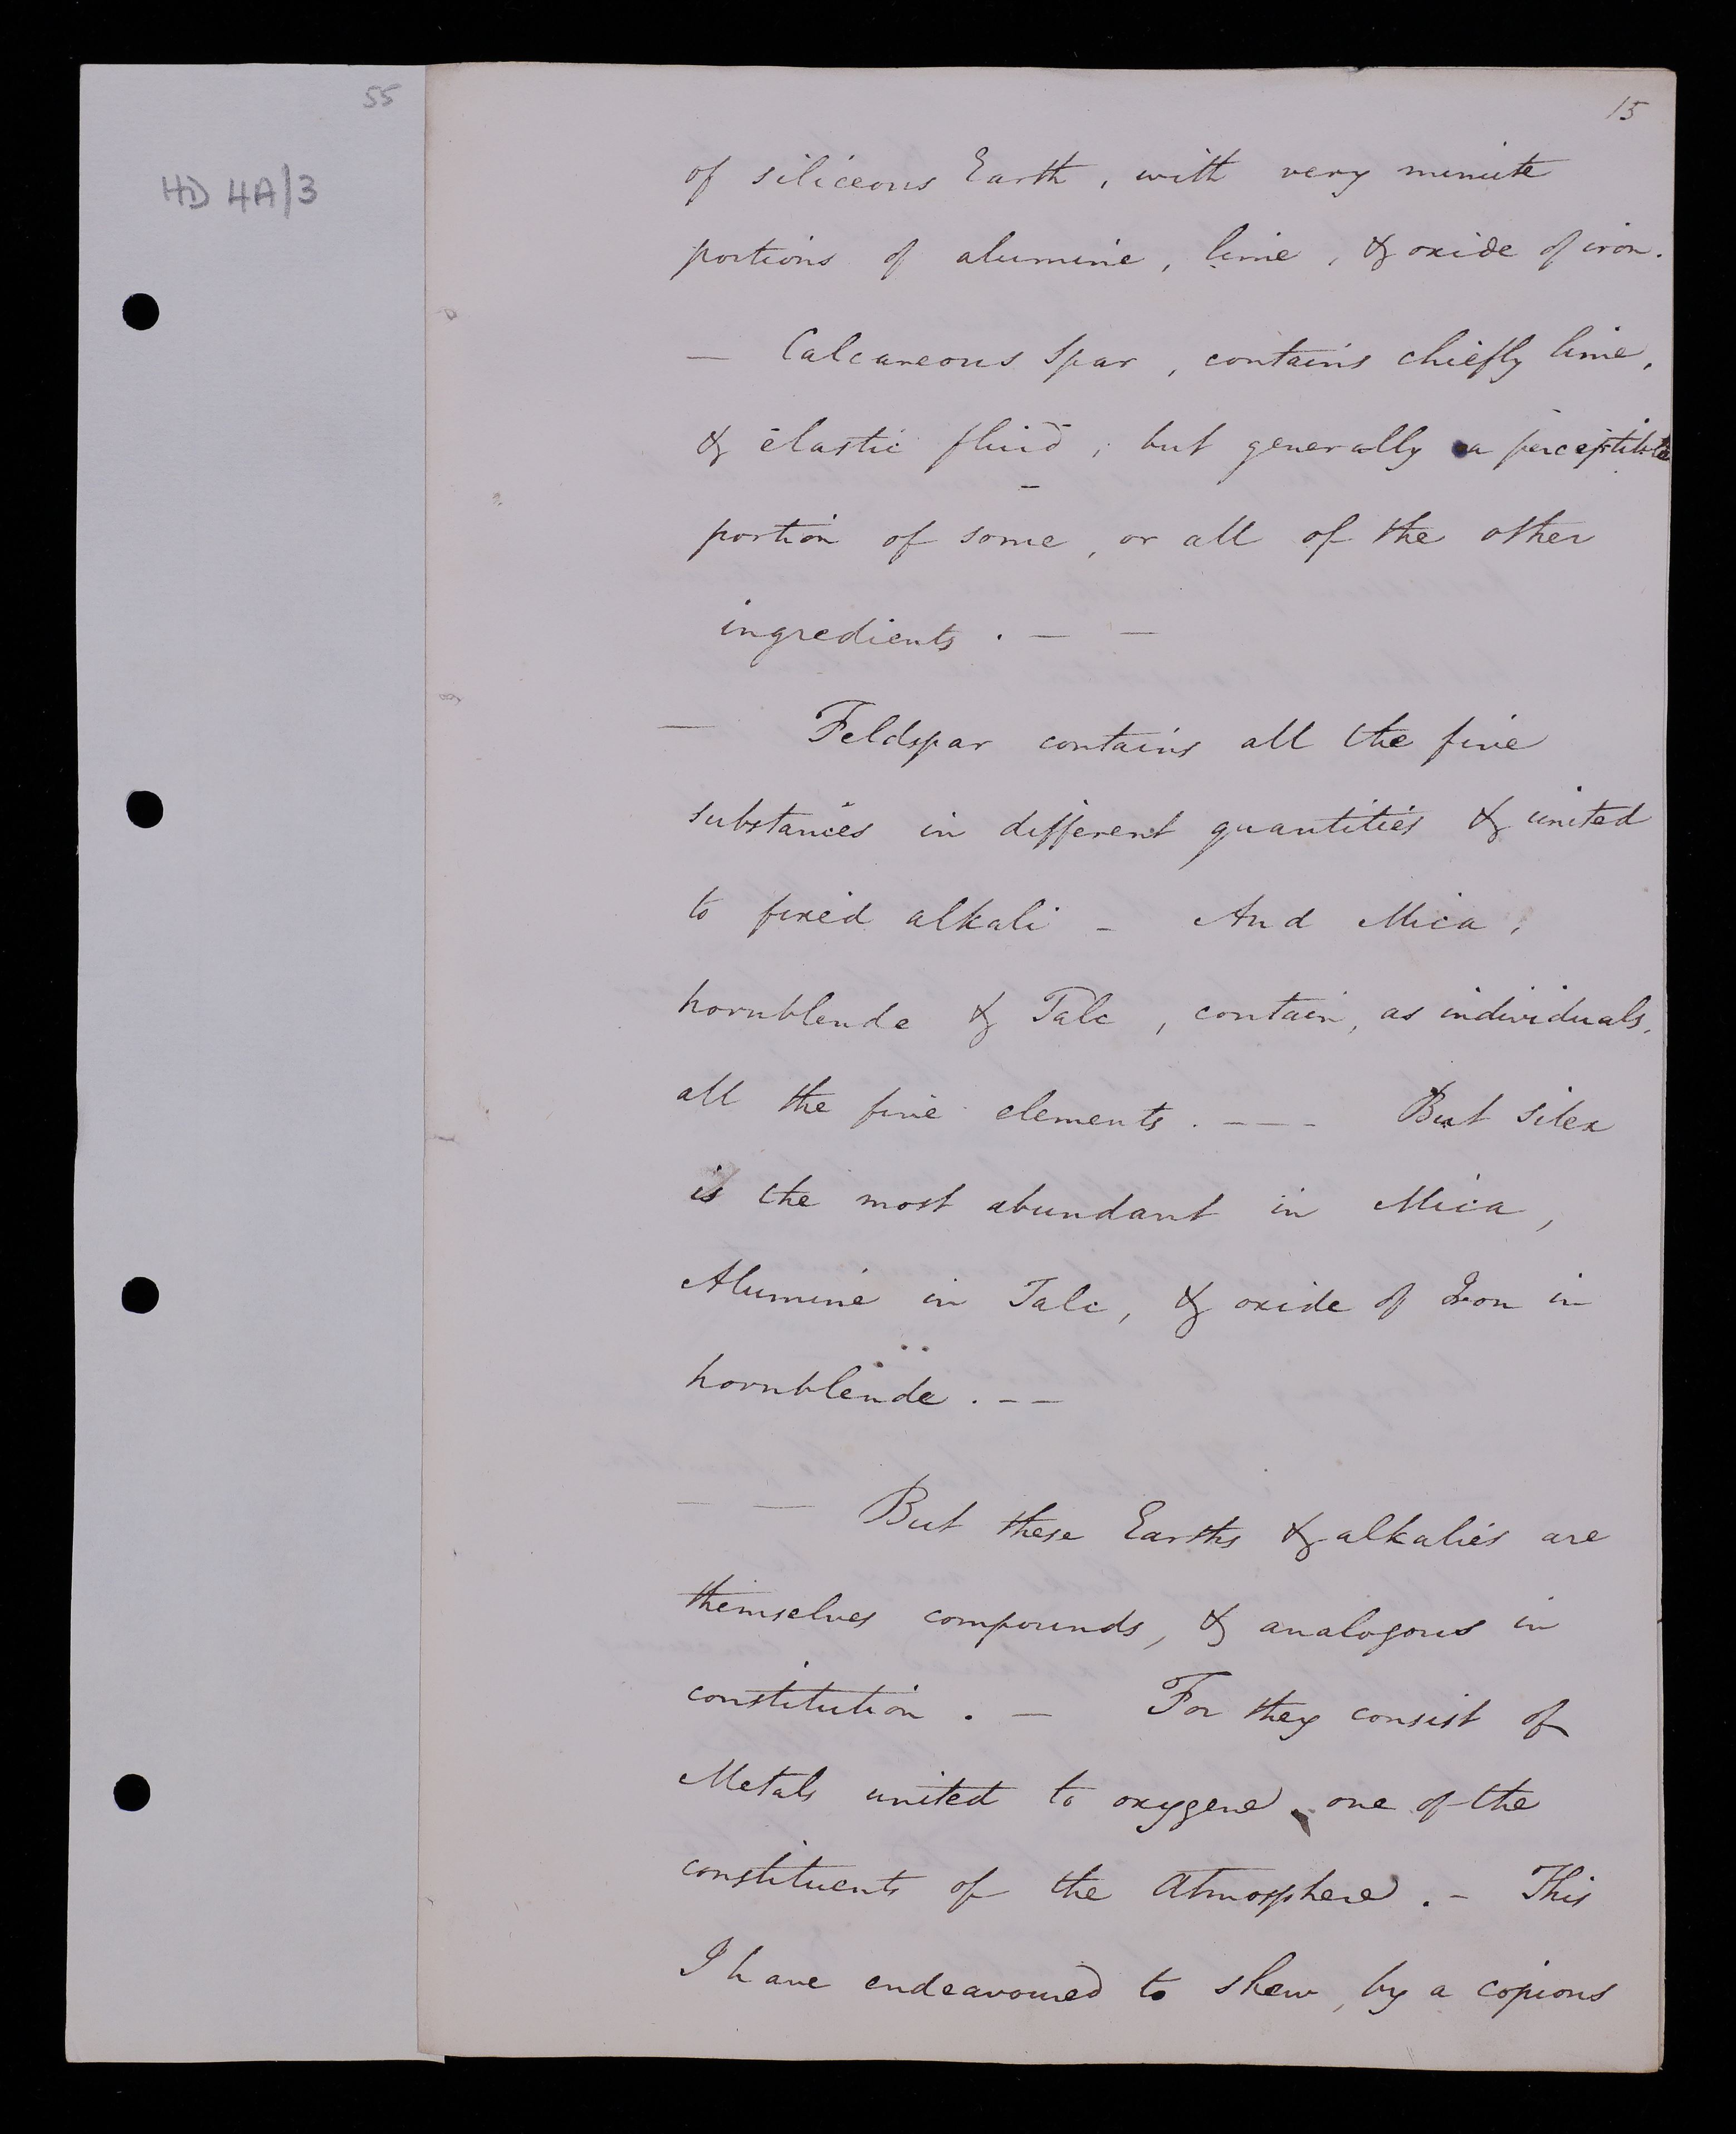 55
HD 4A/3
15
of siliceous Earth, with very minute
portions of alumine, lime, & oxide of iron.
— Calcareous Spar, contains chiefly lime,
& elastic fluid; but generally a perceptible
portion of some, or all of the other
ingredients. — —
— Feldspar contains all the five
substances in different quantities & united
to fixed alkali – And Mica,
hornblende & Talc, contain, as individuals,
all the five elements. – – – But silex
is the most abundant in Mica,
Alumine in Talc, & oxide of Iron in
hornblende. – –
— — But these Earths & alkalies are
themselves compounds, & analogous in
constitution. — For they consist of
Metals united to oxygene, one of the
constituents of the Atmosphere. – This
I have endeavoured to shew, by a copious